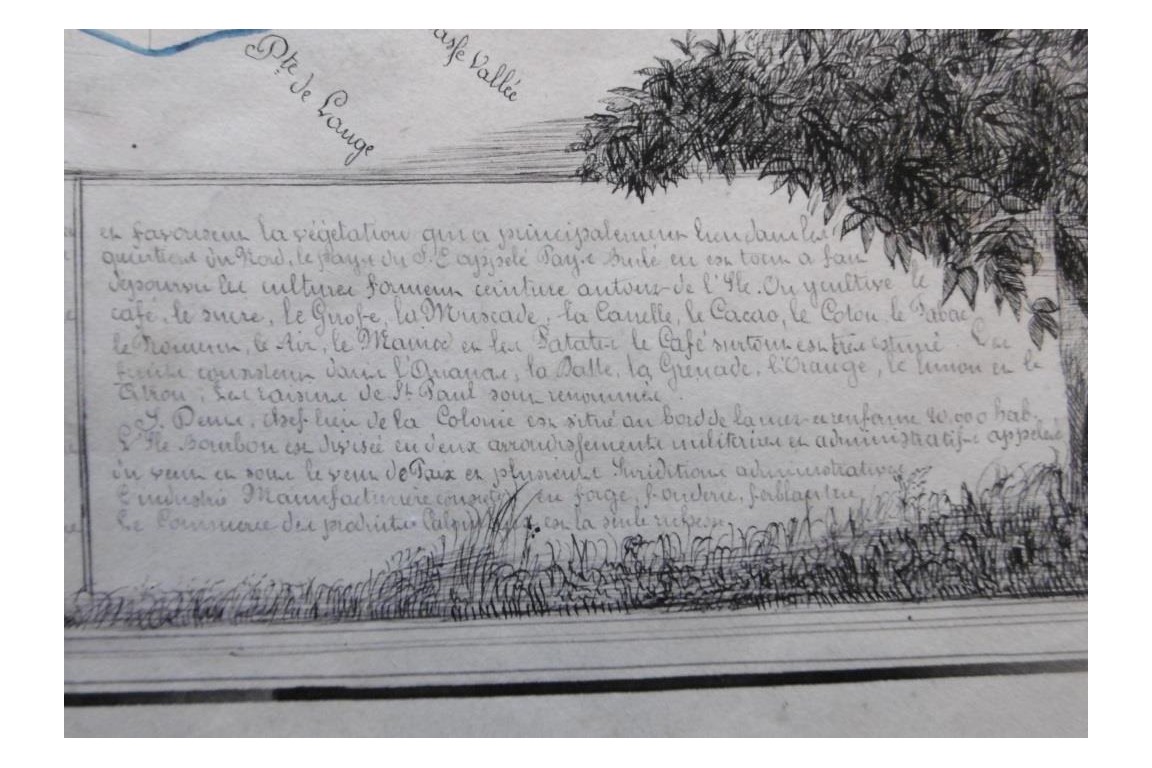 Pte de Lange
Basse Vallée
en favorisent la végétation qui a principalement lieu dans les
quartiers du Nord, le pays du S.E appelé Pays Brulé en est tout a fait
depourvu les cultures forment ceinture autour de l'Ile. On y cultive le
café, le sucre, le Girofe, la Muscade, la Canelle, le Cacao, le Coton le Tabac
le Froment, le Riz, le Manioc et les Patates le Café surtout est très estimé Les
fruits consistent dans l'Ananas, la Datte, la Grenade, l'Orange, le Limon et le
Citron; Les raisins de St Paul sont renommés.
S. Denis, chef lieu de la Colonie est situé au bord de la mer et renferme 20.000 hab.
L'Ile Bourbon est divisé en deux arrondissements militaires et administratifs appelés
du vent et sous le vent de Paix et plusieurs Juriditions administratives
L'industrie Manufacturière consiste en forge, fonderie, ferblantrie,
Le Commerce des produits est la seule richesse.